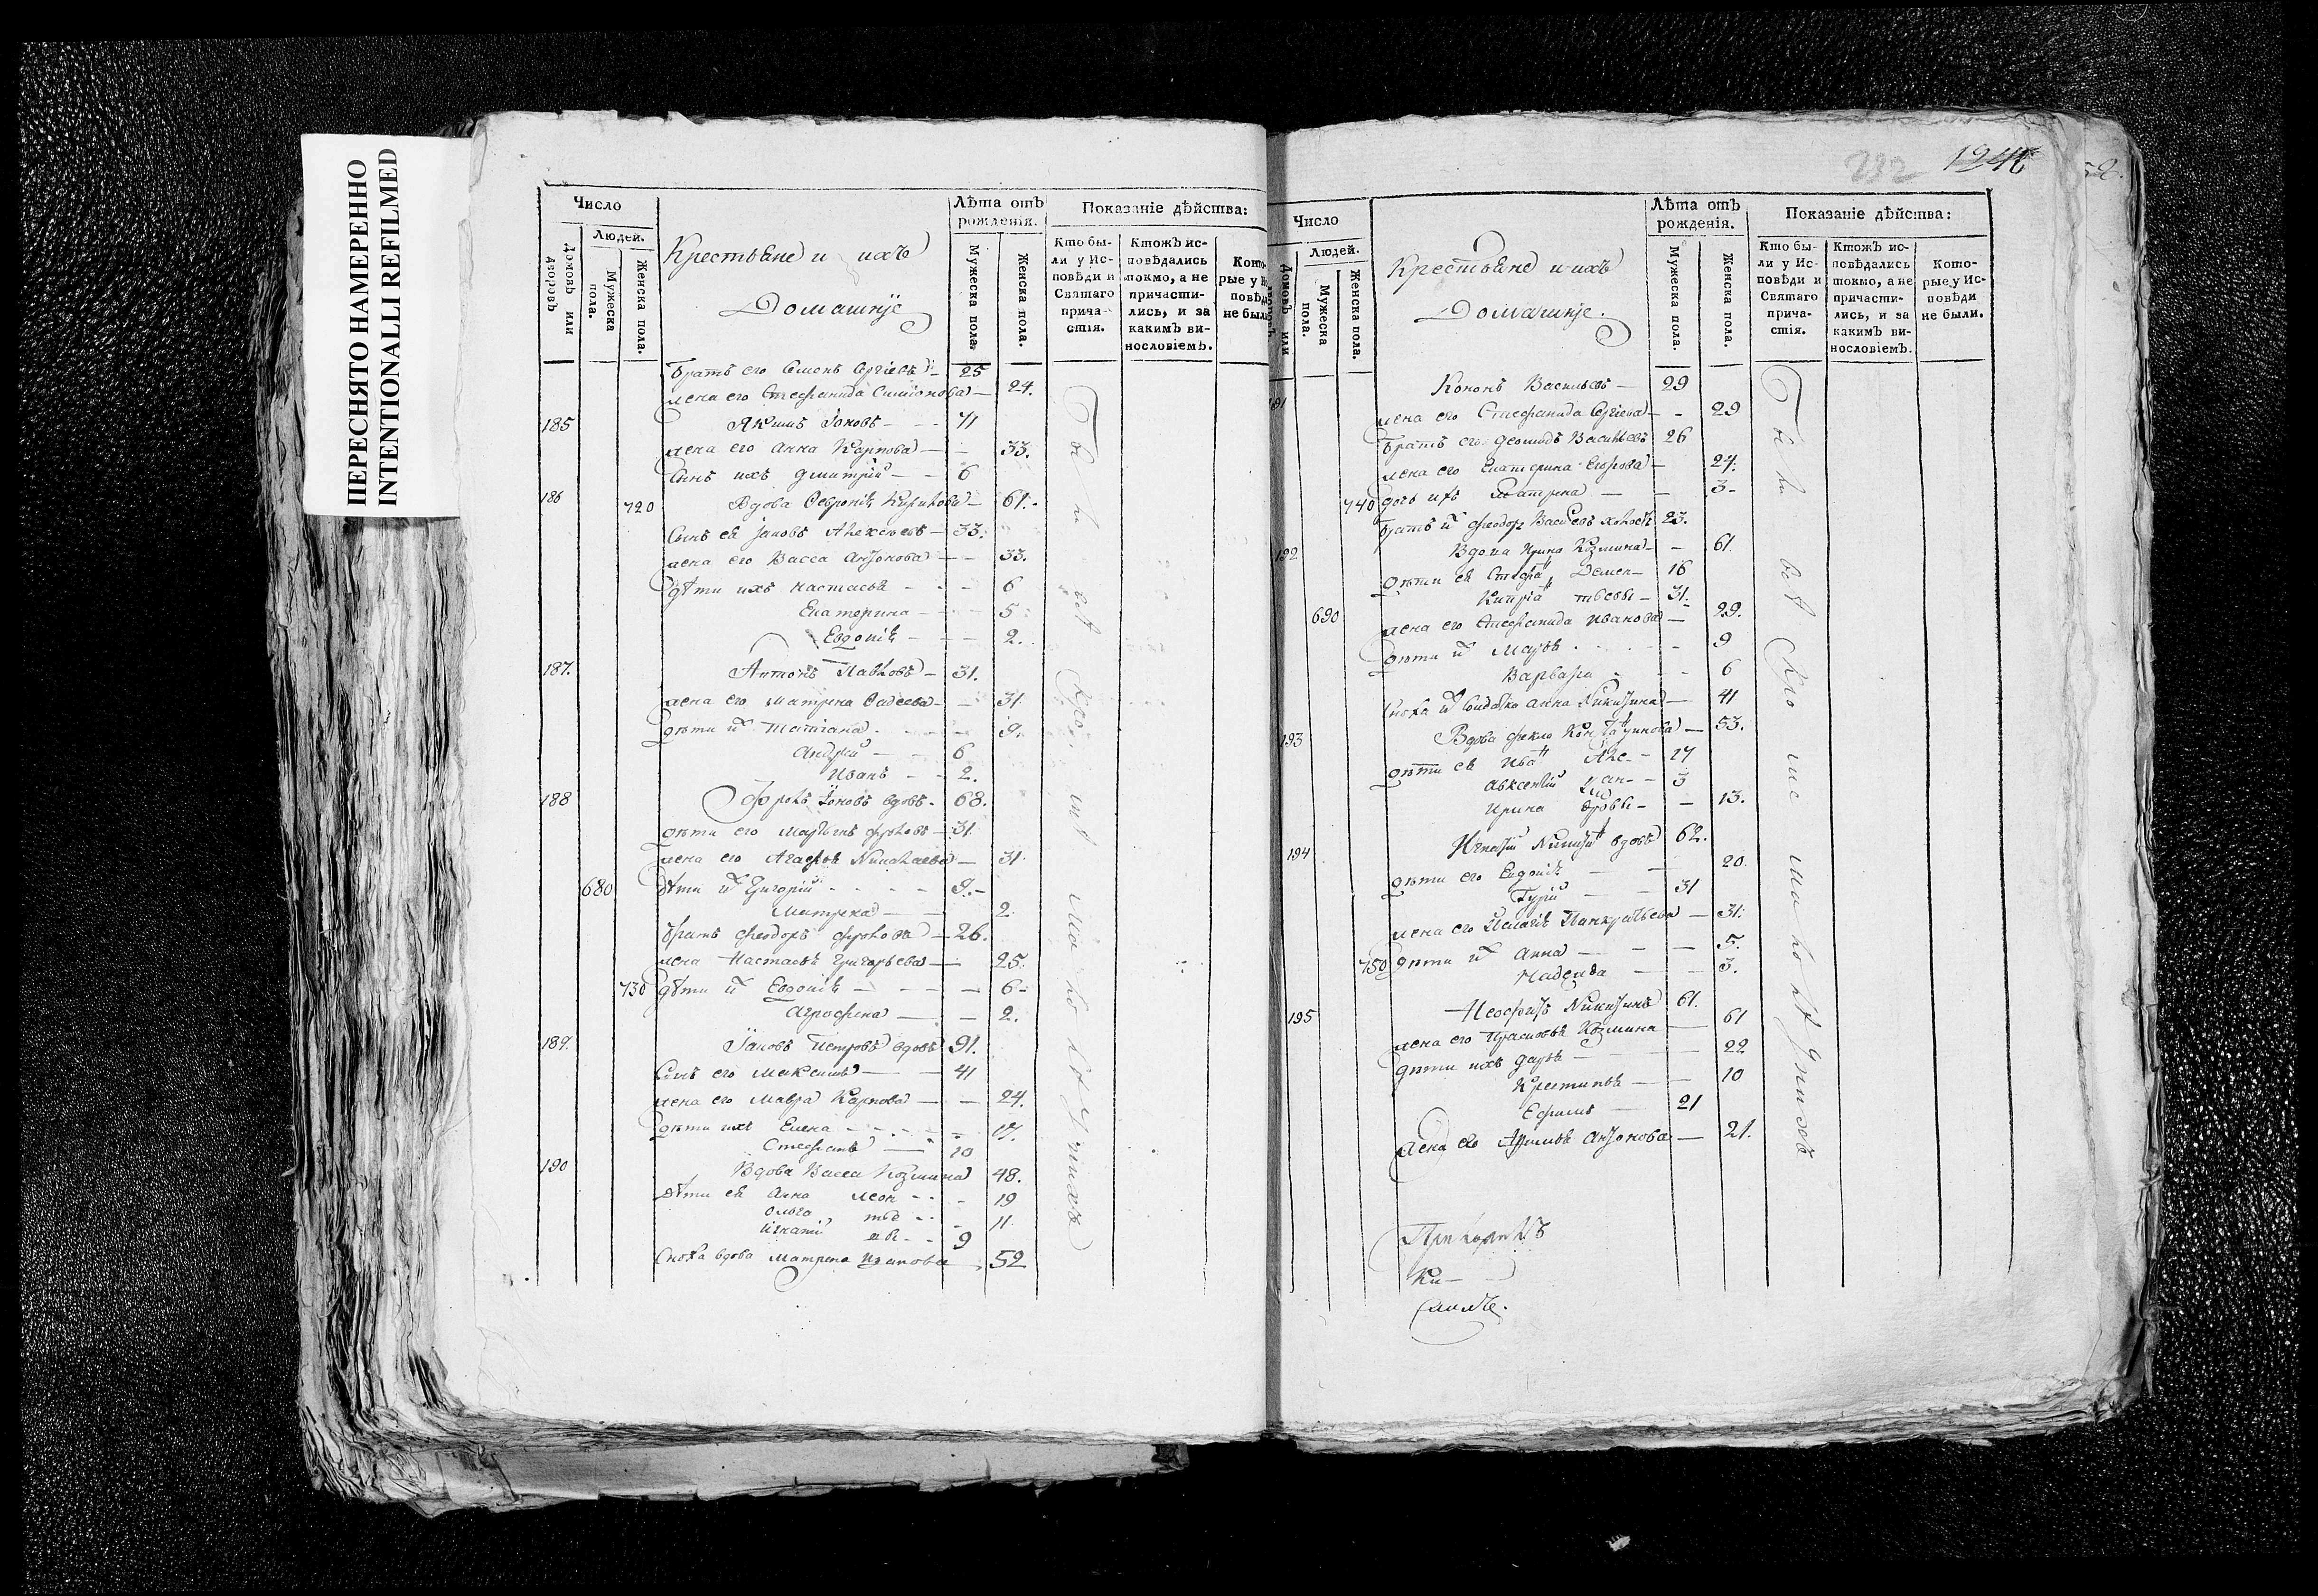 ПЕРЕСНЯТО НАМЕРЕННО
INTENTIONALLI REFILMED
Число
Людей.
Домовъ или дворовъ
Мужеска пола.
Женска пола.
Крестьяне и ихъ
Домашніе
Лѣта отъ рожденія.
Мужеска пола.
Женска пола.
Показаніе дѣйства:
Кто бы-
ли у Ис-
повѣди и
Святаго
прича-
стія.
Ктожъ ис-
повѣдались
токмо, а не
причасти-
лись, и за
какимъ ви-
нословіемъ.
Кото-
рые у
повѣд
не был
братъ его Семенъ Сергіевъ 25
жена его Стефанида Симіонова 24.
185 Якимъ Іоновъ 41
жена его Анна Карпова 33.
Сынъ ихъ Дмитрій 6
186 720 Вдова Февронія 61.
Сынъ ея Іаковъ Алексѣевъ 33.
жена его Васса Антонова 33.
дѣти ихъ Настасья 6
Екатерина 5
Евдокія 2.
187. Антонъ Павловъ 31.
жена его Матрена Фадеева 31.
дѣти их Татіана 9.
Андрей 6
Иванъ 2.
188 Фролъ Іоновъ вдовъ 68.
дѣти его Мартынъ Фроловъ 31.
жена его Агафья Николаева 31.
680 дѣти их Григорій 9.
Матрена 2.
братъ Феодоръ Фроловъ 26.
жена Настасья Григорьева 25.
730 дѣти их Евдокія 6
Агрофена 2.
189. Іаковъ Петровъ вдовъ 91.
Сынъ его Максимъ 41
жена его Мавра Карпова 24.
дѣти ихъ Елена 17.
Стефанъ 10
190 Вдова Васса Козмина 48.
дѣти ея Анна Леон 19
Ольга тье 11.
Игнатій вы 9
Сноха вдова Матрена 52
232 1246
52.
Число
Людей.
Домовъ или
Мужеска пола.
Женска пола.
Крестьяне и ихъ
Домашніе.
Лѣта отъ рожденія.
Мужеска пола.
Женска пола.
Показаніе дѣйства:
Кто бы-
ли у Ис-
повѣди и
Святаго
прича-
стія.
Ктожъ ис-
повѣдались
токмо, а не
причасти-
лись, и за
какимъ ви-
нословіемъ.
Кото-
рые у Ис-
повѣди
не были.
191 Кононъ Васильевъ 29
жена его Стефанида Сергіева 29
братъ его Васильевъ 26
жена его Екатерина Егорова 24.
740 дочь ихъ Матрена 3
братъ их Феодоръ Васильевъ холостъ 23.
192 Вдова Ирина Козмина 61.
дѣти ея Стефан Демен 16
Кипріан тьевы 31.
690 жена его Стефанида Иванова 29.
дѣти их Марья 9
Варвара 6
сноха их солдатка Анна Никитина 41
193 Вдова Фекла Константинова 53.
дѣти ея Иван Але 17
Авксентій ксан 3
Ирина дровы 13.
194 Игнатій Никитин вдовъ 62.
дѣти его Евдокія 20.
Гурій 31
жена его Пелагія Панкратьева 31.
750 дѣти их Анна 5.
Надежда 3.
195 Неофитъ Никитинъ 61.
жена его Прасковья Козмина 61
дѣти ихъ Дарья 22
Крестинья 10
Ефимъ 21
жена его Афимья Антонова 21.